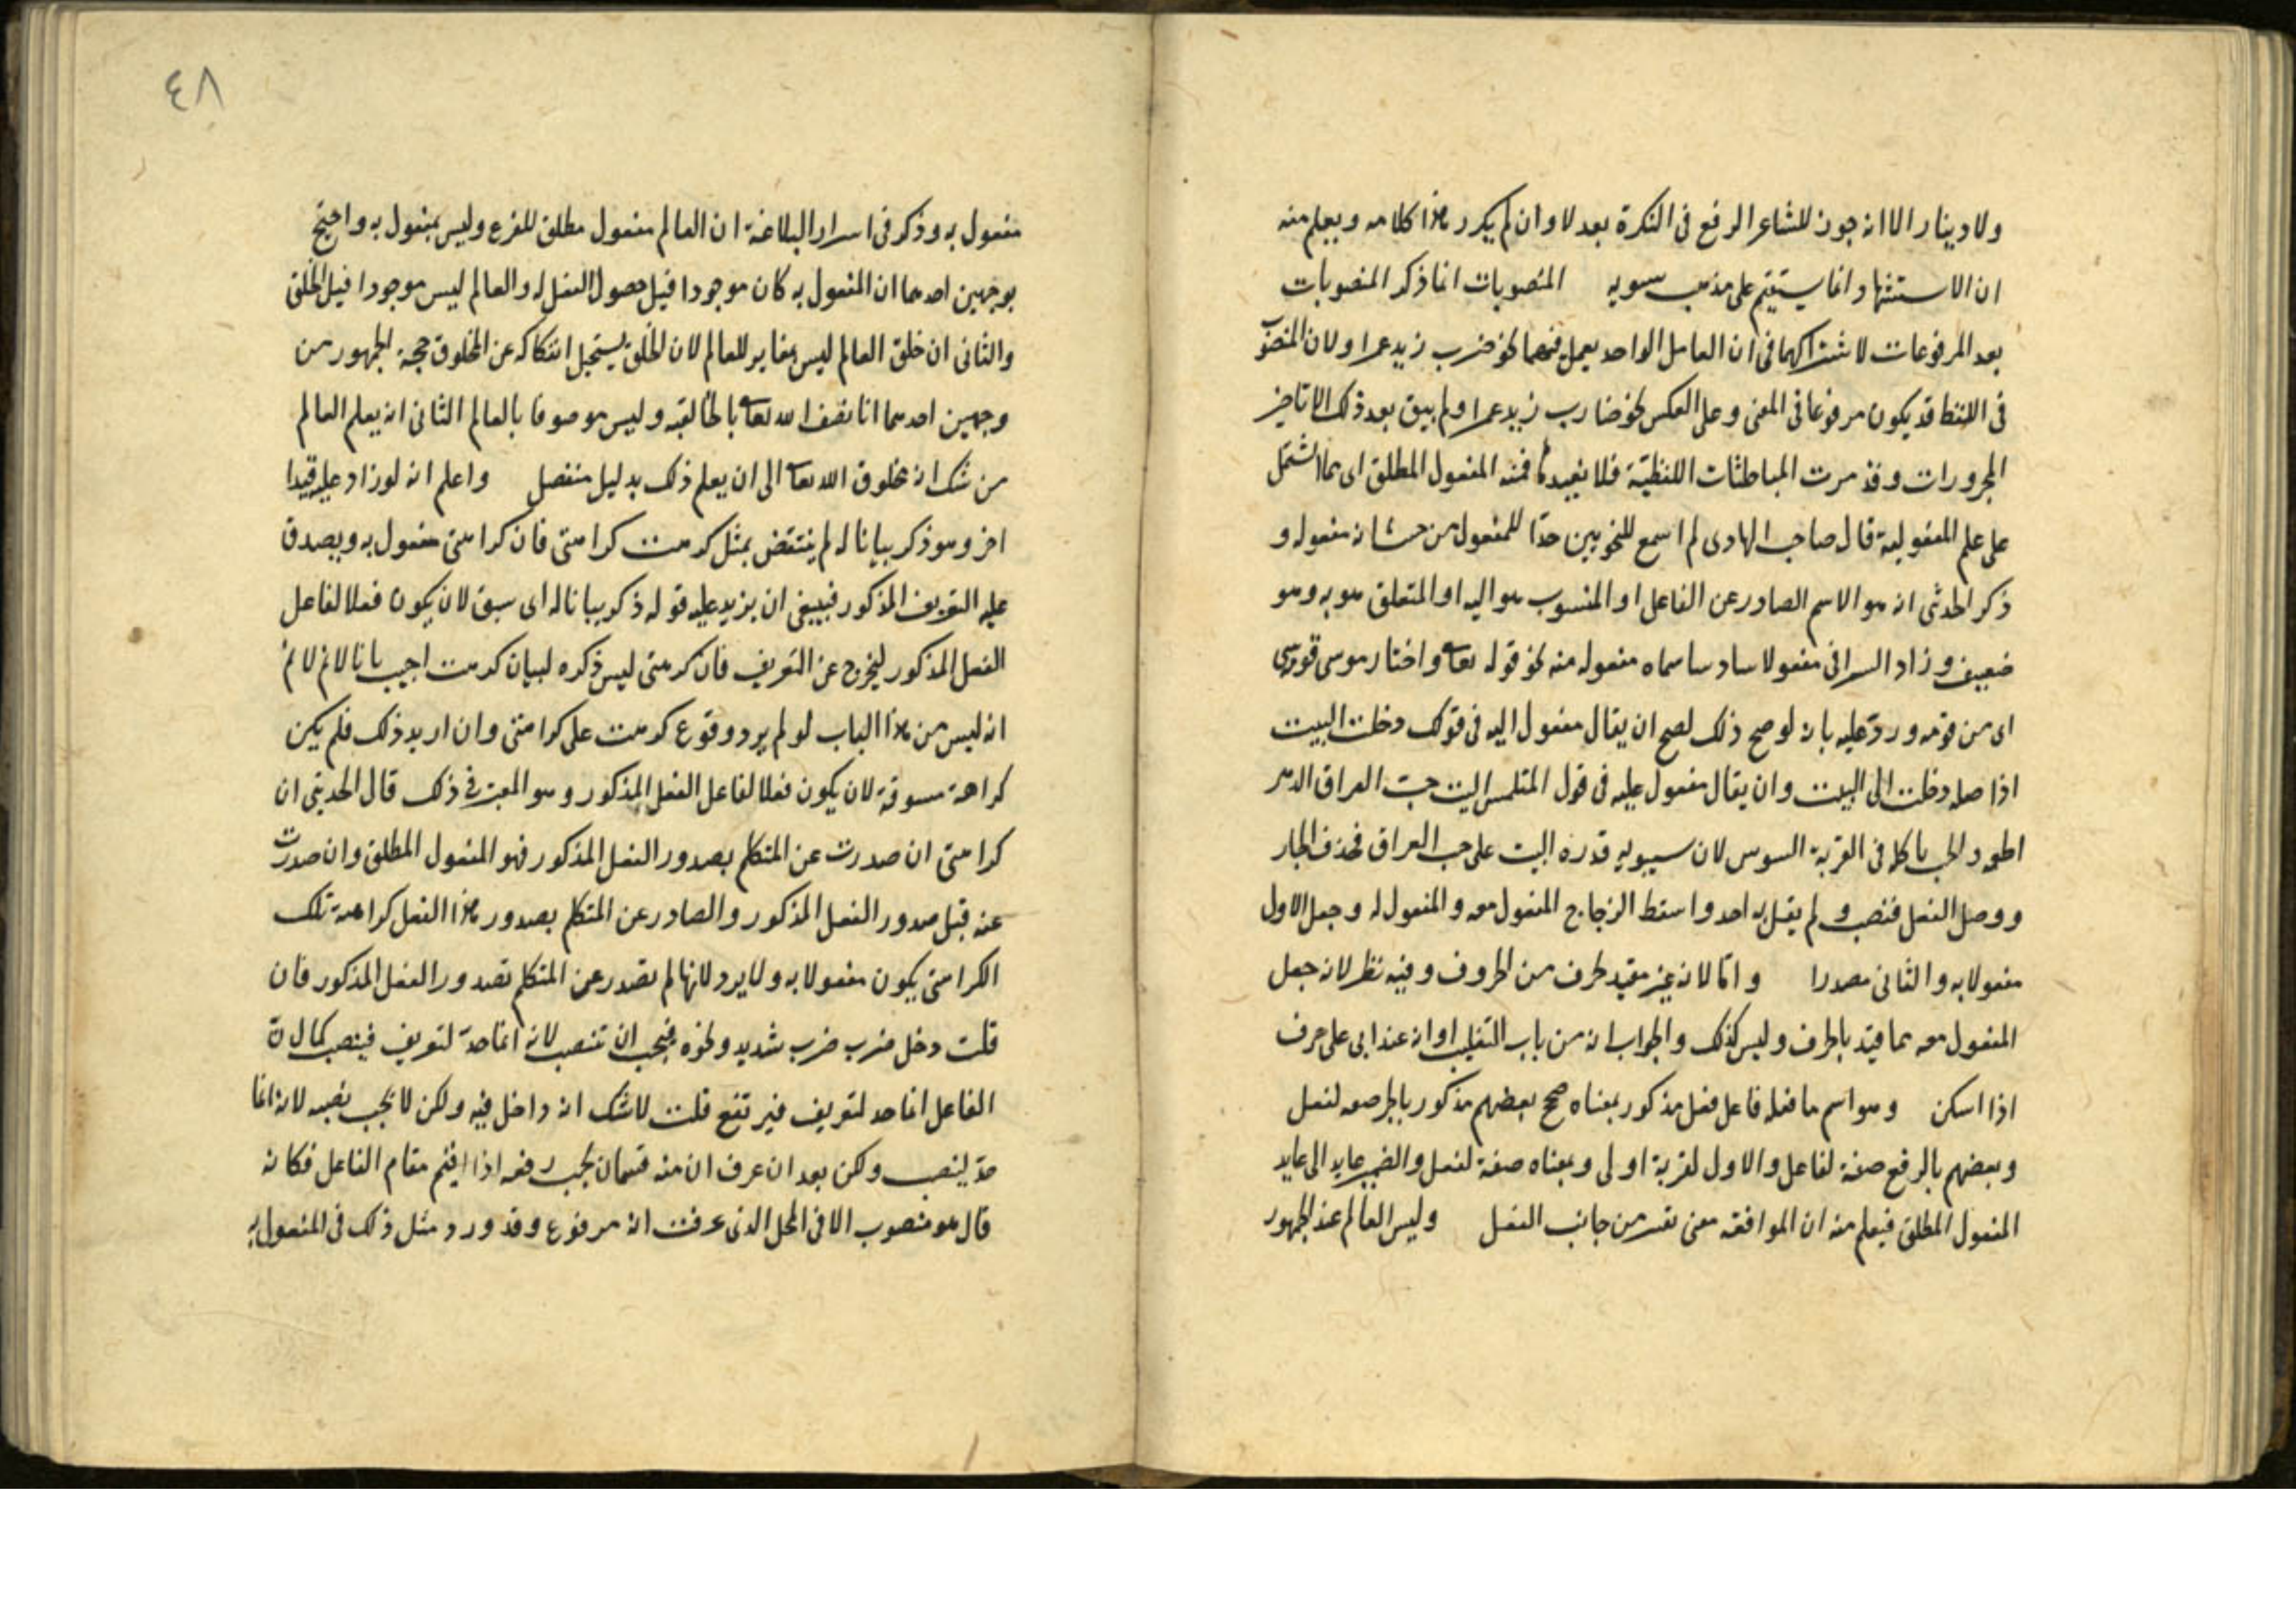 ولا دينار الا انه جوز للشاعر الرفع فى النكرة بعد لا وان لم يكرر هذا كلامه ويعلم منه
ان الاستشهاد انما يستقيم على مذهب سيبويه المنصوبات انما ذكر المنصوبات
بعد المرفوعات لاشتراكهما فى ان العامل الواحد يعمل فيهما نحو ضرب زيد عمرا ولان المنصوب
فى اللفظ قد يكون مرفوعا فى المعنى وعلى العكس نحو ضارب زيد عمرا ولم يبق بعد ذلك الا تاخير
المجرورات وقد مرت المباحثات اللفظية فلا نعيدها فمنه المفعول المطلق اى مما اشتمل
على علم المفعولية قال صاحب الهادى لم اسمع للنحويين حدا للمفعول من حيث انه مفعول و
ذكر الحدثى انه هو الاسم الصادر عن الفاعل او المنسوب هو اليه او المتعلق هو به وهو
ضعيف وزاد السيرافى مفعولا سادسا سماه مفعولا منه نحو قوله تعالى واختار موسى قومه
اى من قومه ورد عليه بانه لو صح ذلك لصح ان يقال مفعول اليه فى قولك دخلت البيت
اذ اصله دخلت الى البيت وان يقال مفعول عليه فى قول المتلمس اليت حب العراق الدهر
اطعمه والحب ياكله فى القرية السوس لان سيبويه قدره اليت على حب العراق فحذف الجار
ووصل الفعل فنصب ولم يقل به احد واسقط الزجاج المفعول معه والمفعول له وجعل الاول
مفعولا به والثانى مصدرا واما لانه غير مقيد بحرف من الحروف وفيه نظر لانه جعل
المفعول معه مما قيد بالحرف وليس كذلك والجواب انه من باب التغليب او انه عند ابى على حرف
اذا اسكن وهو اسم ما فعله فاعل فعل مذكور بمعناه صحح بعضهم مذكور بالجر صفة لفعل
وبعضهم بالرفع صفة لفاعل والاول لقربه اولى وبمعناه صفة لفعل والضمير عايد الى عايد
المفعول المطلق فيعلم منه ان الموافقة معنى تعتبر من جانب الفعل وليس العالم عند الجمهور
٤٨
مفعول به وذكر فى اسرار البلاغة ان العالم مفعول مطلق وليس بمفعول به واحتج
بوجهين احدهما ان المفعول به كان موجودا قبل حصول الفعل له والعالم ليس موجودا قبل الخلق
والثانى ان خلق العالم ليس مغاير للعالم لان الخلق يستحيل انفكاكه عن المخلوق حجة الجمهور من
وجهين احدهما انا نصف الله تعالى بالخالقية وليس موصوفا بالعالم الثانى انه يعلم العالم
من شك انه مخلوق الله تعالى الى ان يعلم ذلك بدليل منفصل واعلم انه لو زاد عليه قيدا
اخر وهو ذكر بيانا له لم ينتقض بمثل كرهت كراهتى فان كراهتى مفعول به ويصدق
عليه التعريف المذكور فينبغى ان يزيد عليه قوله ذكر بيانا له اى سبق لان يكون فعلا لفاعل
الفعل المذكور ليخرج عن التعريف فان كرهتى ليس ذكره لبيان كرهت اجيب بانا لانم لانم
انه ليس من هذا الباب لو لم يرد وقوع كرهت على كراهتى وان اريد ذلك فلم يكن
كراهة مسوقة لان يكون فعلا لفاعل الفعل المذكور وهو المعتبر فى ذلك قال الحديثى ان
كراهتى ان صدرت عن المتكلم بصدور الفعل المذكور فهو المفعول المطلق وان صدرت
عنه قبل صدور الفعل المذكور والصادر عن المتكلم بصدور هذا الفعل كراهة تلك
الكراهتى يكون مفعولا به ولا يرد لانها لم تصدر عن المتكلم بصدور الفعل المذكور فان
قلت دخل ضرب ضرب شديد ونحوه فيجب ان تنصب لانه اتما حد لتعريف فينصب كما ان
الفاعل انما حد لتعريف فيرتفع قلت لا شك انه داخل فيه ولكن لا يجب نصبه لانه انما
حد لينصب ولكن بعد ان عرف ان منه قسمان يجب رفعه اذا اقيم مقام الفاعل فكانه
قال هو منصوب الا فى المحل الذى عرفت انه مرفوع وقد ورد مثل ذلك فى المفعول به